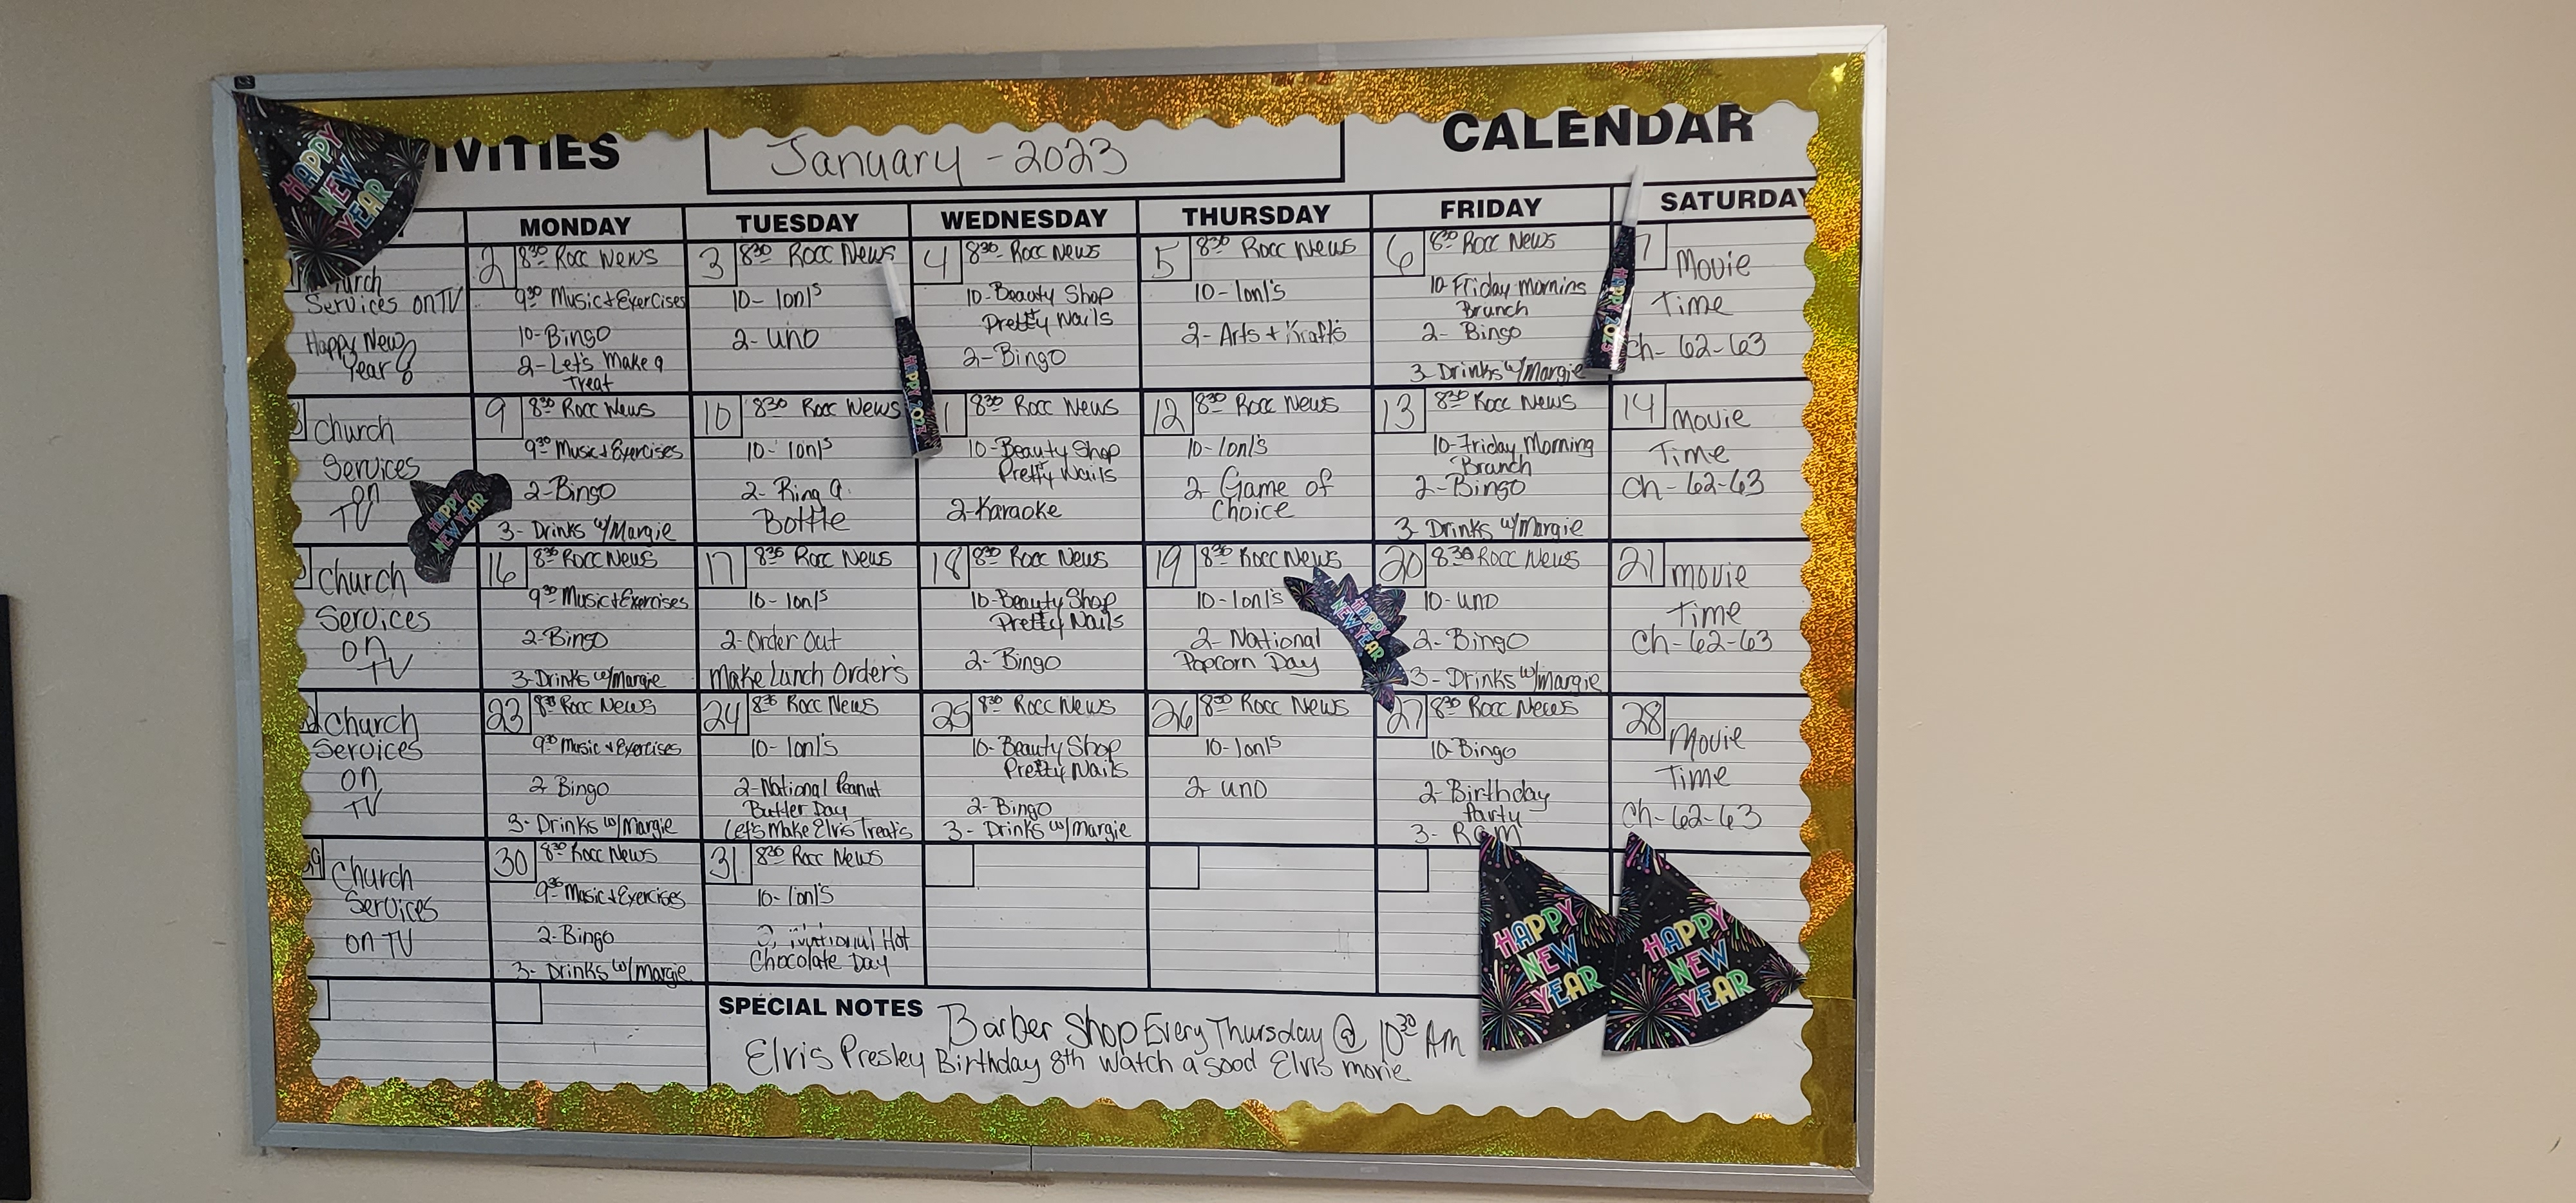 IVITIES
January - 2023
CALENDAR
MONDAY
TUESDAY
WEDNESDAY
THURSDAY
FRIDAY
SATURDAY
Services on TV
Happy New
Year!
2
8³⁰ Rocc News
9³⁰ Music + Exercises
10-Bingo
2-Let's Make a
Treat
3
8³⁰ Rocc News
10-1on1's
2-uno
4
8³⁰ Rocc News
10-Beauty Shop
Pretty Nails
2-Bingo
5
8³⁰ Rocc News
10-1on1's
2-Arts + Krafts
6
8³⁰ Rocc News
10-Friday Morning
Brunch
2-Bingo
3-Drinks w/Margie
7
Movie
Time
Ch-62-63
Church
Services
on
TV
9
8³⁰ Rocc News
9³⁰ Music + Exercises
2-Bingo
3-Drinks w/Margie
10
8³⁰ Rocc News
10-1on1's
2-Ring a
Bottle
1
8³⁰ Rocc News
10-Beauty Shop
Pretty Nails
2-Karaoke
12
8³⁰ Rocc News
10-1on1's
2-Game of
Choice
13
8³⁰ Rocc News
10-Friday Morning
Brunch
2-Bingo
3-Drinks w/Margie
14
Movie
Time
Ch-62-63
Church
Services
on
TV
16
8³⁰ Rocc News
9³⁰ Music + Exercises
2-Bingo
3-Drinks w/Margie
17
8³⁰ Rocc News
10-1on1's
2-Order Out
Make Lunch Order's
18
8³⁰ Rocc News
10-Beauty Shop
Pretty Nails
2-Bingo
19
8³⁰ Rocc News
10-1on1's
2-National
Popcorn Day
20
8³⁰ Rocc News
10-uno
2-Bingo
3-Drinks w/Margie
21
Movie
Time
Ch-62-63
Church
Services
on
TV
23
8³⁰ Rocc News
9³⁰ Music + Exercises
2 Bingo
3-Drinks w/Margie
24
8³⁰ Rocc News
10-1on1's
2-National Peanut
Butter Day
Let's Make Elvis Treat's
25
8³⁰ Rocc News
10-Beauty Shop
Pretty Nails
2-Bingo
3-Drinks w/Margie
26
8³⁰ Rocc News
10-1on1's
2-uno
27
8³⁰ Rocc News
10-Bingo
2-Birthday
Party
3-RCM
28
Movie
Time
Ch-62-63
Church
Services
on TV
30
8³⁰ Rocc News
9³⁰ Music + Exercises
2-Bingo
3-Drinks w/Margie
31
8³⁰ Rocc News
10-1on1's
National Hot
Chocolate Day
SPECIAL NOTES
Barber Shop Every Thursday @ 10³⁰ Am
Elvis Presley Birthday 8th Watch a good Elvis movie
HAPPY
NEW
YEAR
HAPPY 2023
HAPPY 2023
HAPPY
NEW YEAR
HAPPY
NEW YEAR
HAPPY
NEW
YEAR
HAPPY
NEW
YEAR